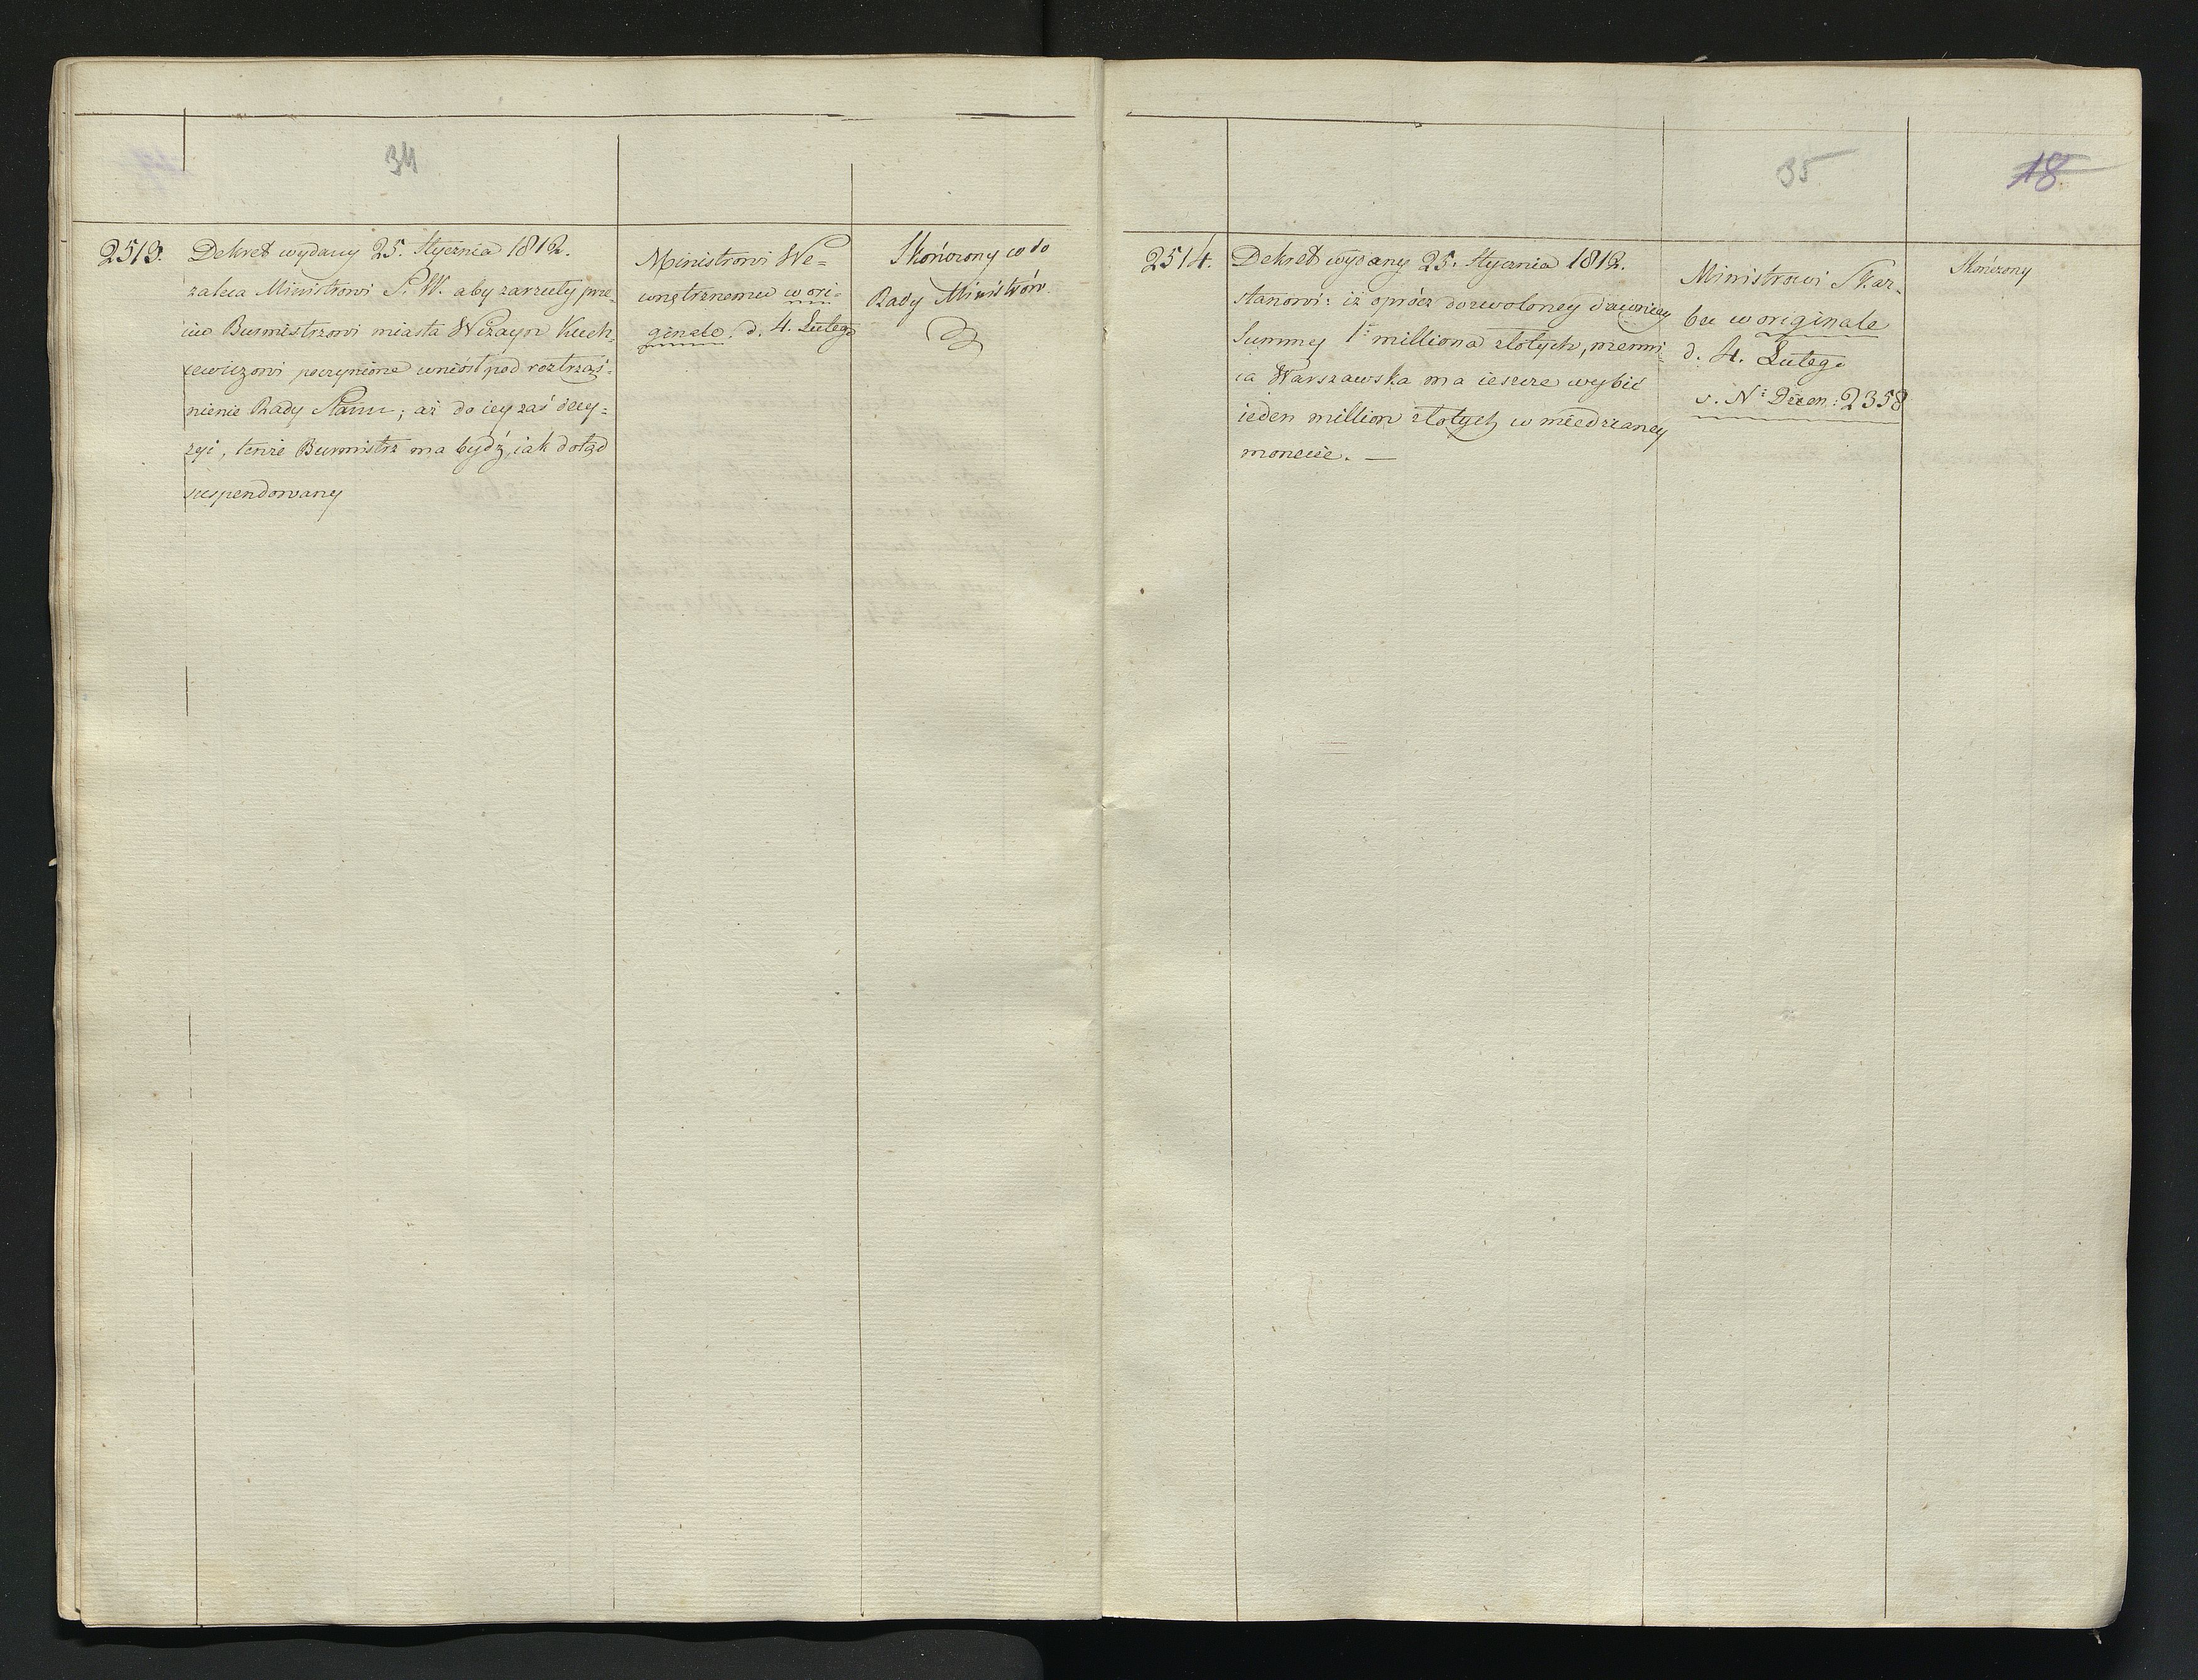 34
2513.
Dekret wydany 25. Stycznia 1812.
zaleca Ministrowi S. W. aby zarzuty prze-
ciw Burmistrzowi miasta Wiżayn Kuch-
cewiczowi poczynione wniósł pod roztrząś-
nienie Rady Stanu; aż do iey zaś decy=
zyi, tenże Burmistrz ma bydź, iak dotąd
suspendowany
Ministrowi We=
wnętrznemu w ori-
ginale. d. 4. Lutego
Skończony co do
Rady Ministrów.
35
18
2514.
Dekret wydany 25. Stycznia 1812.
stanowi: iż oprócz dozwoloney dawniey
Summy 1. milliona złotych, menni-
ca Warszawska ma ieszcze wybić
ieden million złotych w miedzianey
monecie. —
Ministrowi Skar-
bu w originale
d. 4. Lutego
v. N: Dzien: 2358
Skończony